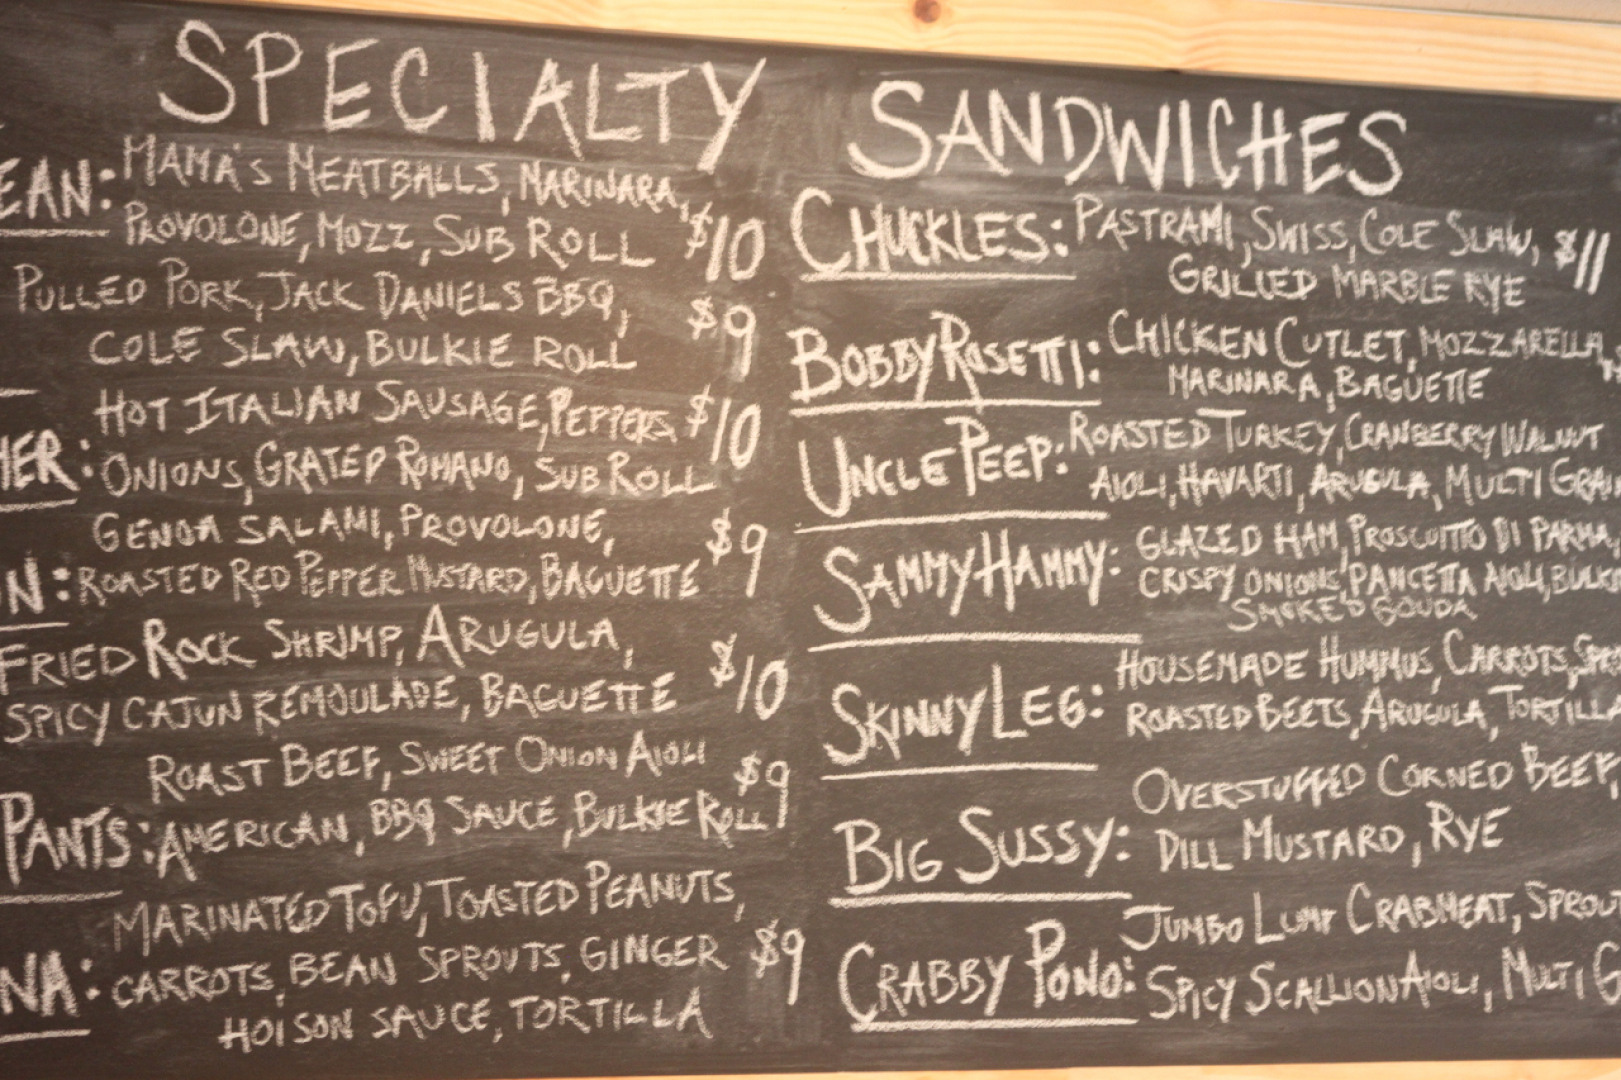 SPECIALTY SANDWICHES
EAN: MAMA'S MEATBALLS, MARINARA,
PROVOLONE, MOZZ, SUB ROLL $10
PULLED PORK, JACK DANIELS BBQ,
COLE SLAW, BULKIE ROLL $9
HOT ITALIAN SAUSAGE, PEPPERS $10
HER: ONIONS, GRATED ROMANO, SUB ROLL
GENOA SALAMI, PROVOLONE, $9
N: ROASTED RED PEPPER MUSTARD, BAGUETTE
FRIED ROCK SHRIMP, ARUGULA,
SPICY CAJUN REMOULADE, BAGUETTE $10
ROAST BEEF, SWEET ONION AIOLI $9
PANTS: AMERICAN, BBQ SAUCE, BULKIE ROLL
MARINATED TOFU, TOASTED PEANUTS,
NA: CARROTS, BEAN SPROUTS, GINGER $9
HOISON SAUCE, TORTILLA
CHUCKLES: PASTRAMI, SWISS, COLE SLAW, $11
GRILLED MARBLE RYE
BOBBY ROSETTI: CHICKEN CUTLET, MOZZARELLA,
MARINARA, BAGUETTE
UNCLE PEEP: ROASTED TURKEY, CRANBERRY WALNUT
AIOLI, HAVARTI, ARUGULA, MULTI GRAI
SAMMY HAMMY: GLAZED HAM, PROSCUITTO DI PARMA,
CRISPY ONIONS, PANCETTA AIOLI, BULKI
SMOKED GOUDA
SKINNY LEG: HOUSEMADE HUMMUS, CARROTS,
ROASTED BEETS, ARUGULA, TORTILLA
BIG SUSSY: OVERSTUFFED CORNED BEEF,
DILL MUSTARD, RYE
CRABBY PONO: JUMBO LUMP CRABMEAT, SPROU
SPICY SCALLION AIOLI, MULTI G